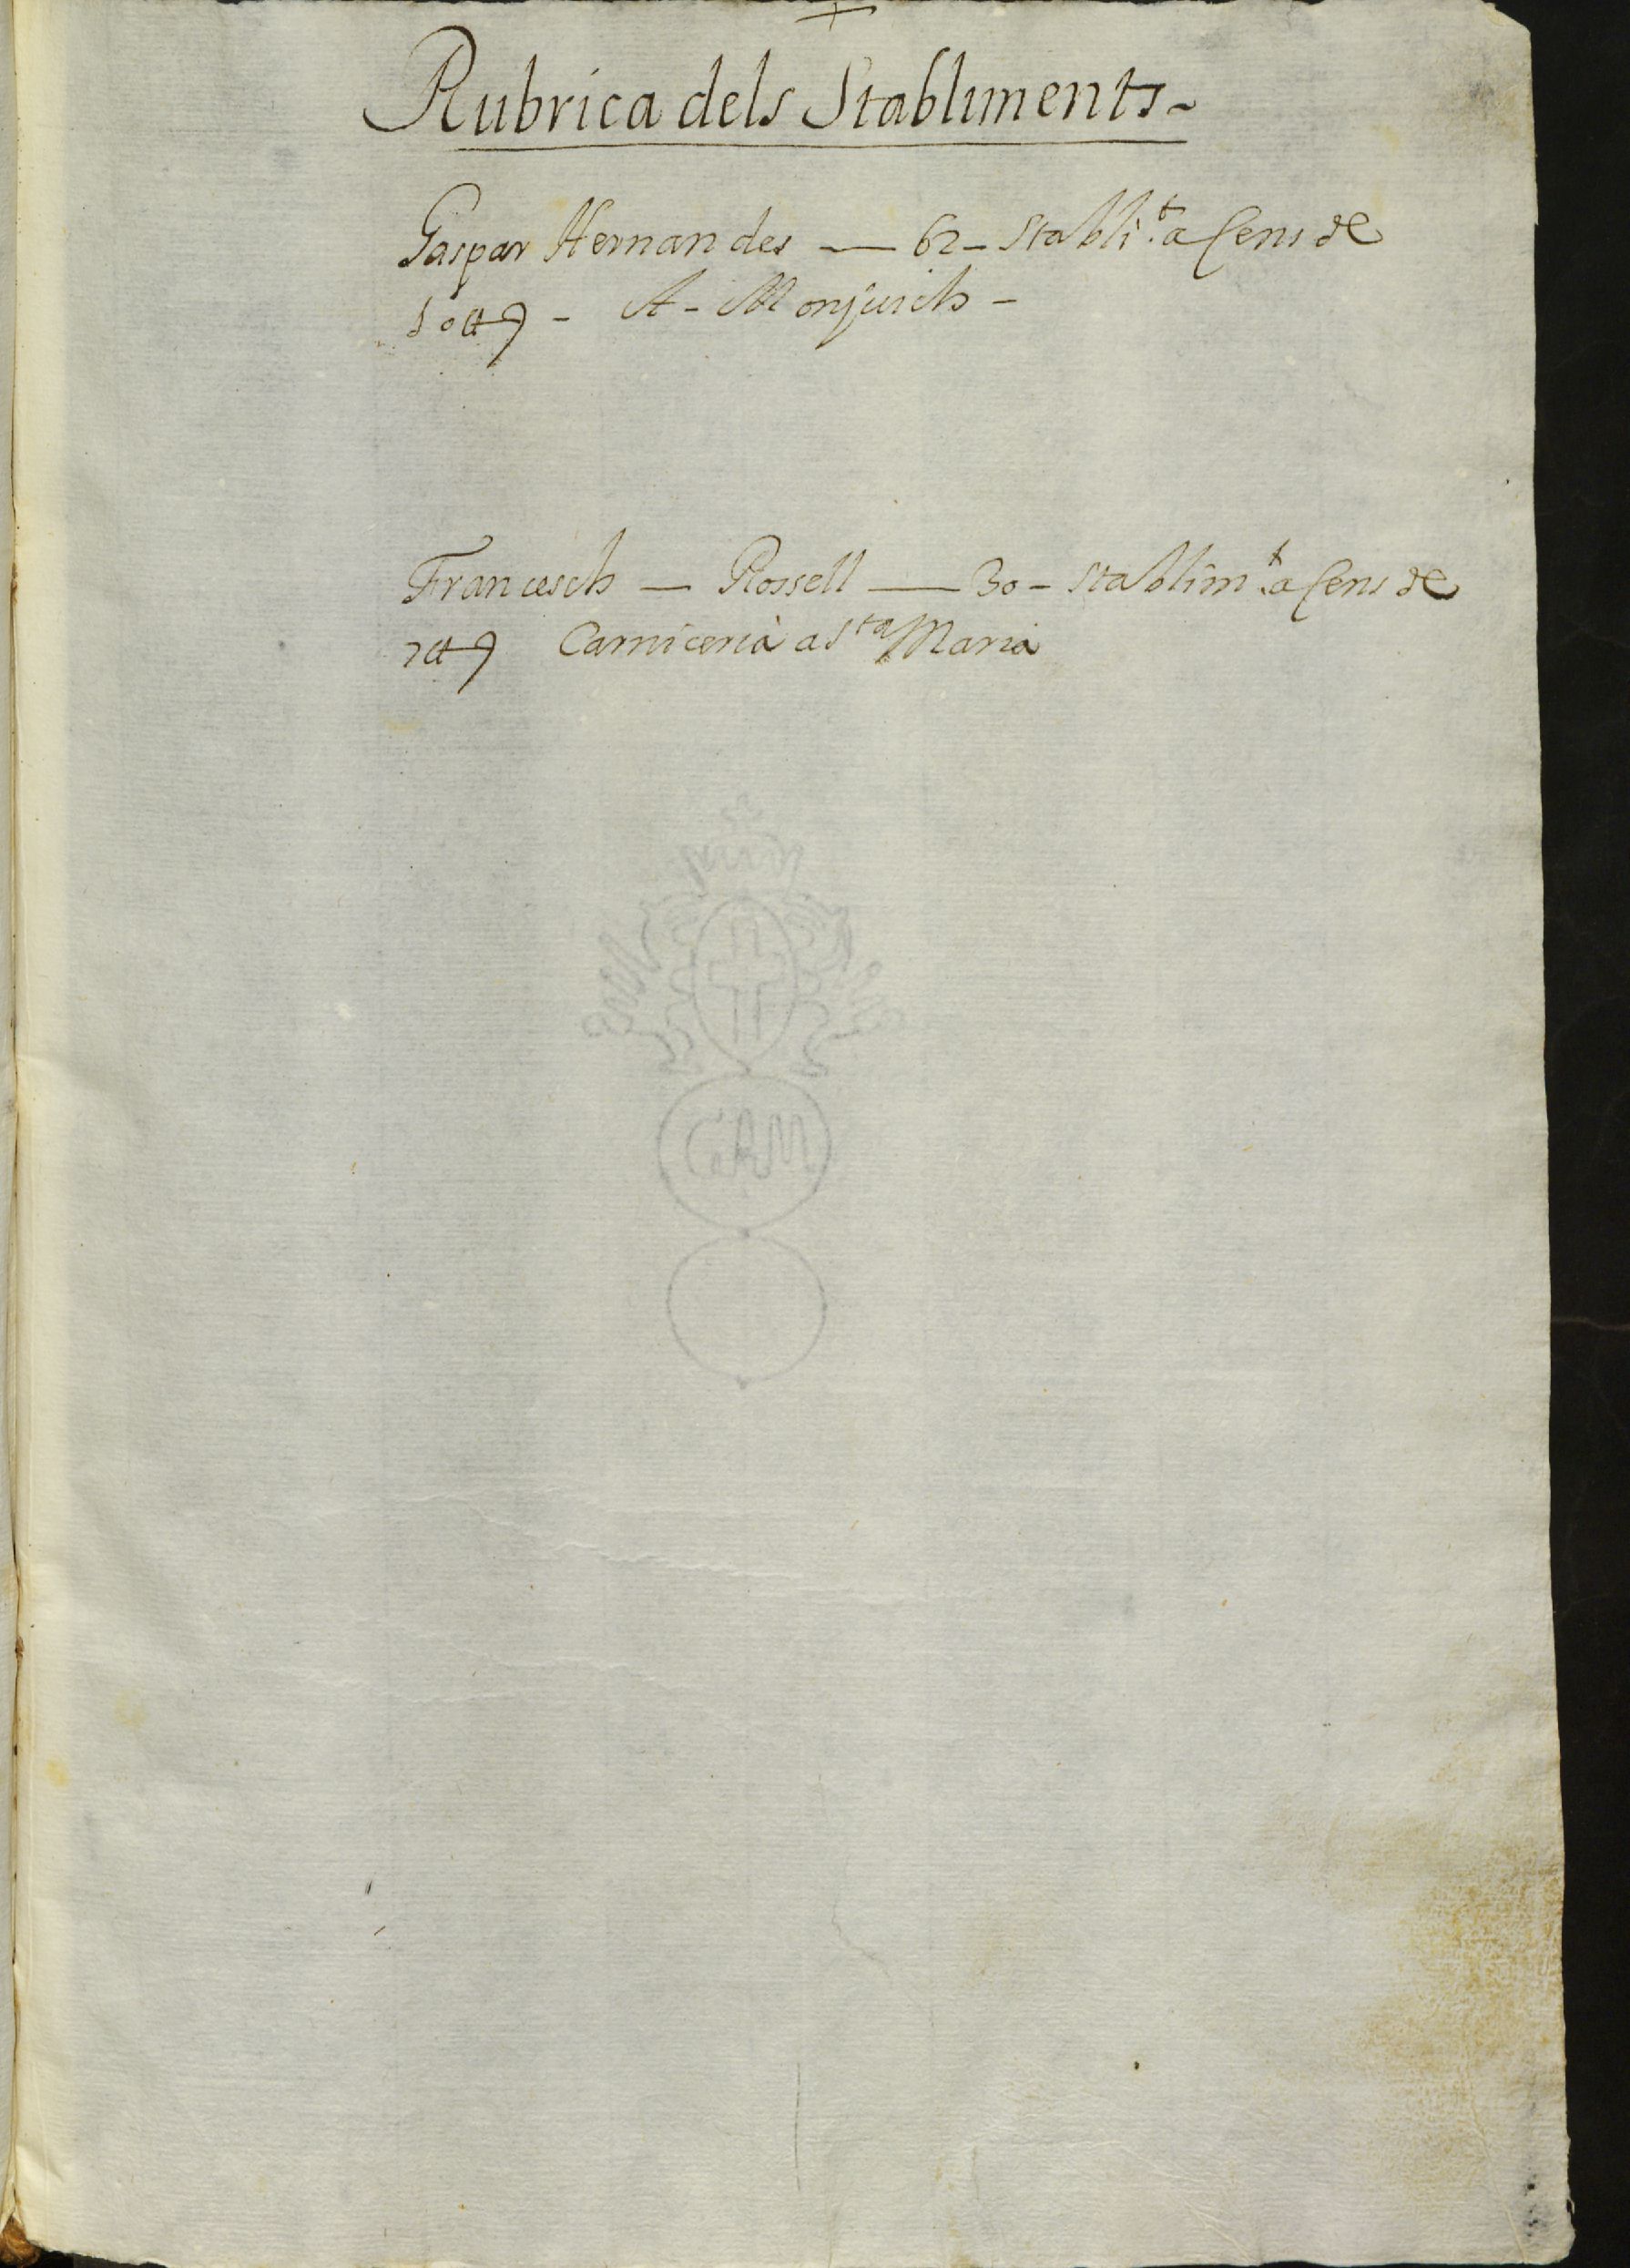 +
Rubrica dels Stabliments-
Gaspar Hernandes — 62 - Stabli.t a Cens de
10 ₶ 9 - A - Monjuich -
Francesch — Rossell — 30 - Stablim.t a Cens de
7 ₶ 9 Carniceria a Sta Maria